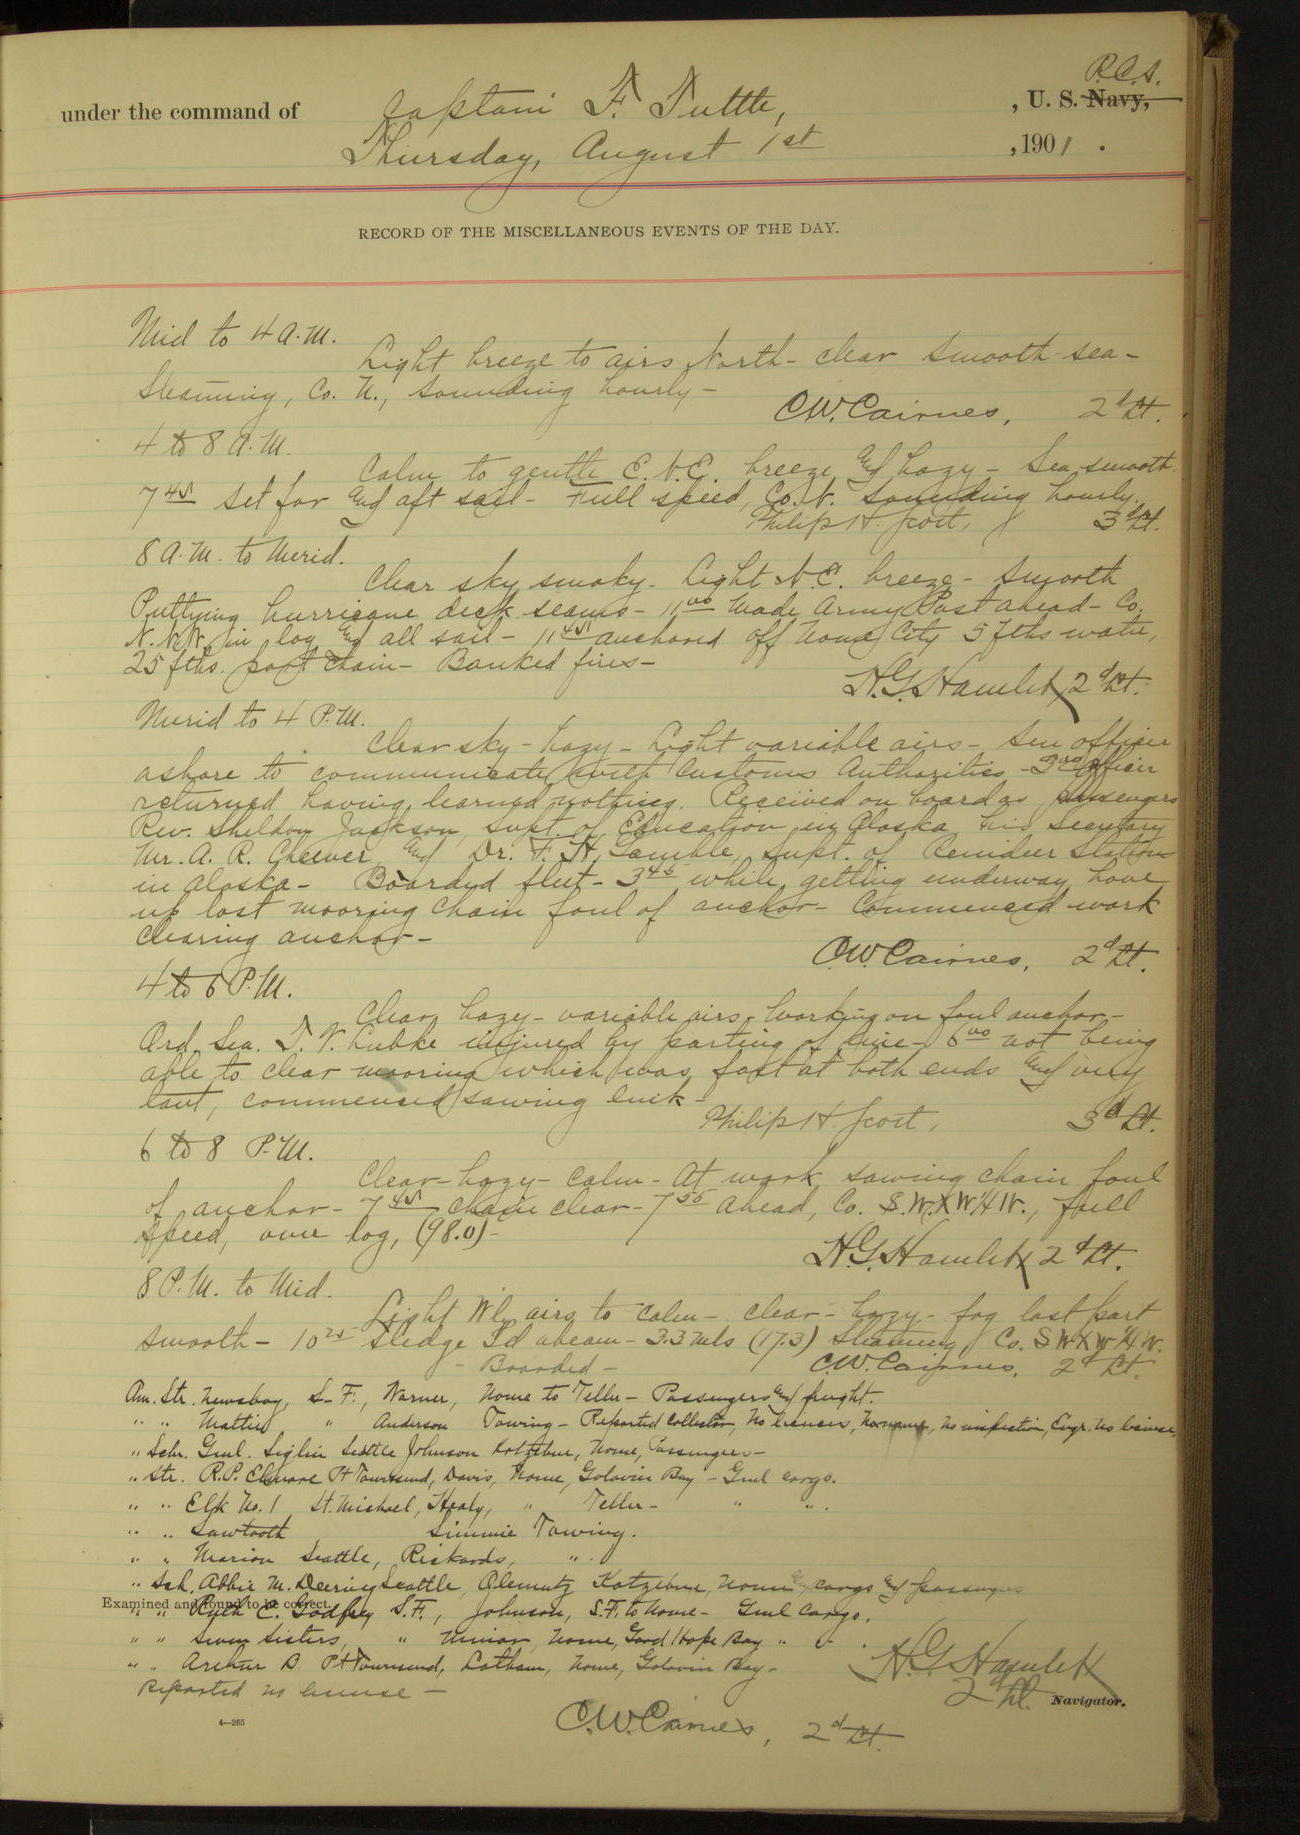 R.C.S.
under the command of Captain F. Tuttle, , U. S. Navy,
Thursday, August 1st , 1901 .
RECORD OF THE MISCELLANEOUS EVENTS OF THE DAY.
Mid to 4 A.M.
Light breeze to airs North - clear smooth sea -
Steaming, Co. N., sounding hourly -
C.W. Cairnes, 2d Lt.
4 to 8 A.M.
Calm to gentle E.N.E. breeze and hazy - Sea smooth.
7 45 Set for and aft sail - Full speed, Co. N. Sounding hourly.
Philip H. Scott, 3d Lt.
8 A.M. to Merid.
Clear sky, smoky - Light N.E. breeze - Smooth
Puttying hurricane deck seams - 11 00 Made Army Post ahead - Co.
N.N.W. in log and all sail - 11 45 anchored off Nome City 5 fths water,
25 fths. port chain - Banked fires -
H.G. Hamlet 2d Lt.
Merid to 4 P.M.
Clear sky - hazy - Light variable airs - Sen officer
ashore to communicate with Customs Authorities - officer
returned having learned nothing. Received on board as passengers
Rev. Sheldon Jackson, Supt. of Education in Alaska his Secretary
Mr. A. R. Cheever and Dr. F. H. Gamble, Supt. of Reindeer Stations
in Alaska - Boarded fleet - 3 45 while getting underway hove
up lost mooring chain foul of anchor - Commenced work
clearing anchor -
C.W. Cairnes, 2d Lt.
4 to 6 P.M.
Clear, hazy - variable airs - Working on foul anchor -
Ord. Sea. T. V. Lubke injured by parting of line - 6 00 not being
able to clear mooring which was fast at both ends and very
taut, commenced sawing link -
Philip H. Scott, 3d Lt.
6 to 8 P.M.
Clear - hazy - calm - At work sawing chain foul
of anchor - 7 45 chain clear - 7 55 ahead, Co. S.W.XW.½W., full
speed, over log, (98.0) -
H.G. Hamlet 2d Lt.
8 P.M. to Mid.
Light Wly airs to calm - clear - hazy - fog last part
smooth - 10 25 Sledge Id abeam - 3.3 mls (17.3) Steaming, Co. SWXW½W.
- Boarded - C.W. Cairnes, 2d Lt.
Am. Str. Newsboy, S.F., Warner, Nome to Teller - Passengers and freight.
" " Mattie " Anderson Towing - Reported Collector, No licenses, No name, no inspection, Engr. no license,
" Schr. Genl. Siglin Seattle Johnson Kotzebue, Nome, Passengers -
" Str. R.P. Elmore Pt Townsend, Davis, Nome, Golovin Bay - Genl cargo.
" " Elk No. 1 St. Michael, Healy, " Teller - " " .
" " Sawtooth Simmie Towing.
" " Marion Seattle, Rickards, " .
" Sch. Abbie M. Deering Seattle, Kotzebue, Nome cargo and passengers
Examined and found to be correct.
" " Ruth E. Godfrey S.F., Johnson, S.F. to Nome - Genl Cargo.
" " Seven Sisters, " Minior, Nome, Good Hope Bay " " .
" " Arthur B Pt Townsend, Latham, Nome, Golovin Bay -
Reported no license -
H.G. Hamlet
2d Lt. Navigator.
4—265
C.W. Cairnes, 2d Lt.